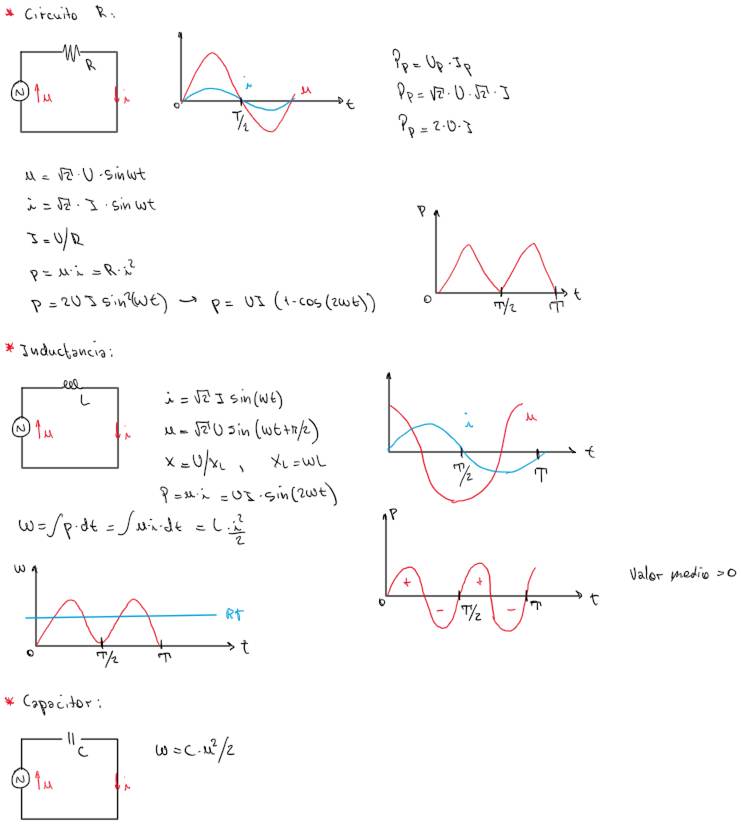 * Circuito R:
R
N
u
i
i
u
0
T/2
t
Pp = Up · Ip
Pp = √2 · U · √2 · I
Pp = 2 · U · I
u = √2 · U · sin wt
i = √2 · I · sin wt
I = U/R
p = u · i = R · i²
p = 2 U I sin²(wt) → p = UI (1 - cos(2wt))
P
0
T/2
T
t
* Inductancia:
L
N
u
i
i = √2 I sin(wt)
u = √2 U sin(wt + π/2)
X = U/XL , XL = wL
P = u · i = UI · sin(2wt)
i
u
T/2
T
t
W = ∫ p · dt = ∫ u · i · dt = L · i²/2
P
+
-
+
-
0
T/2
T
t
Valor medio = 0
W
0
T/2
T
t
* Capacitor:
C
N
u
i
W = C · u²/2